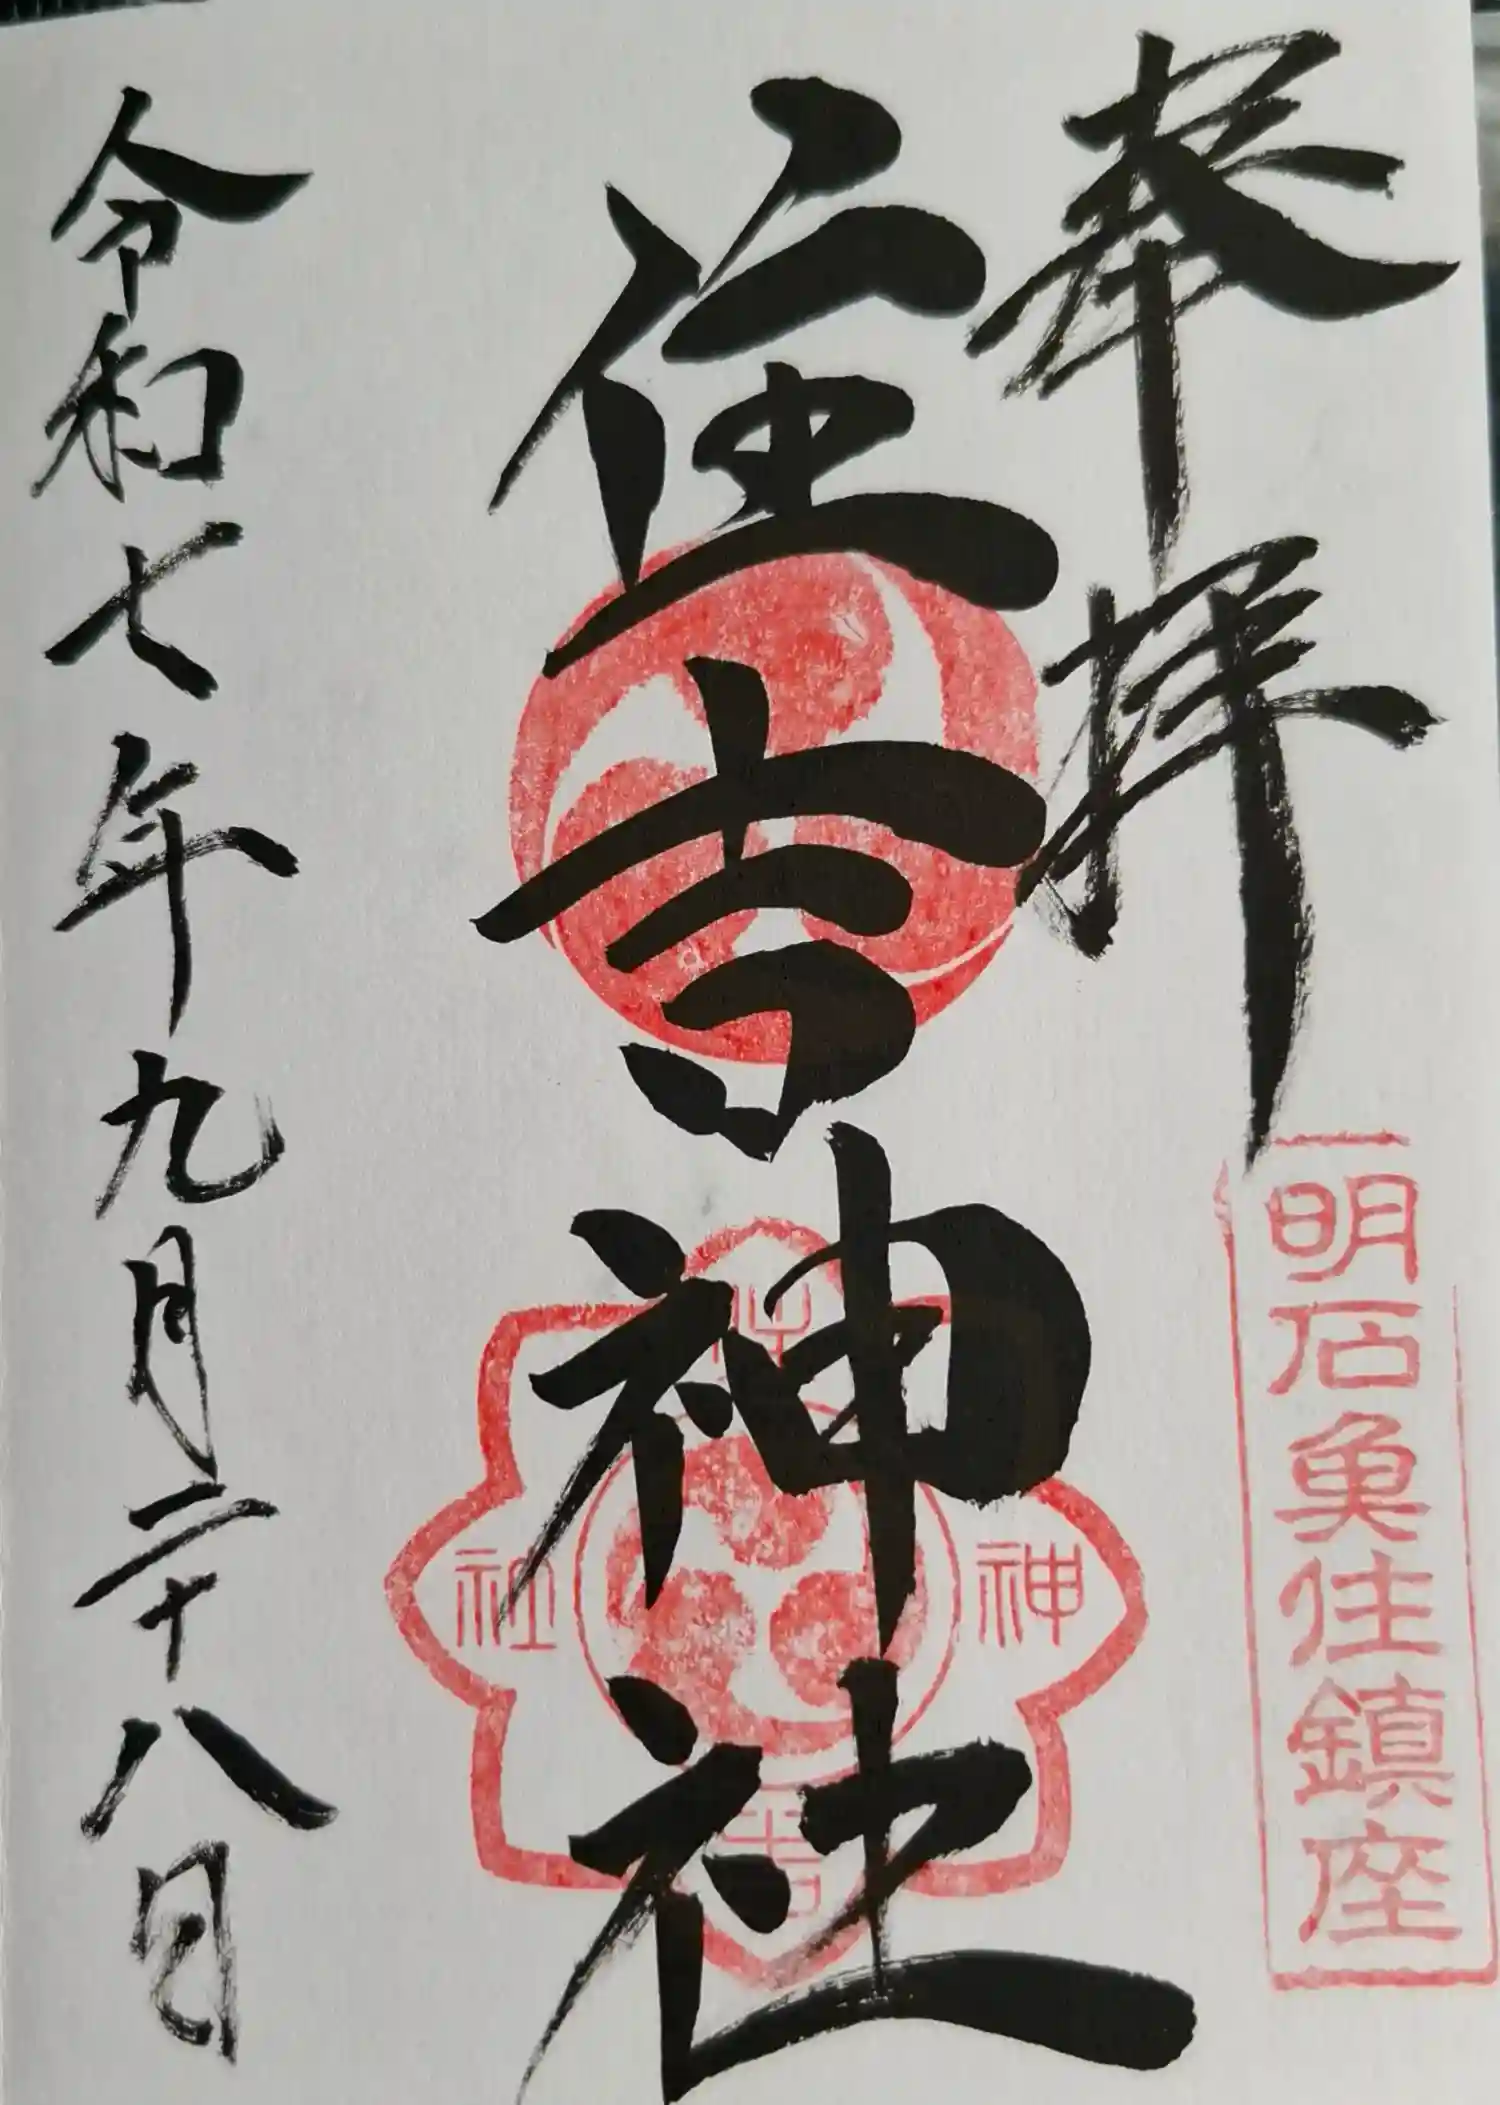 奉拝
明石魚住鎮座
住吉神社
住
神
社
吉
令和七年九月二十八日